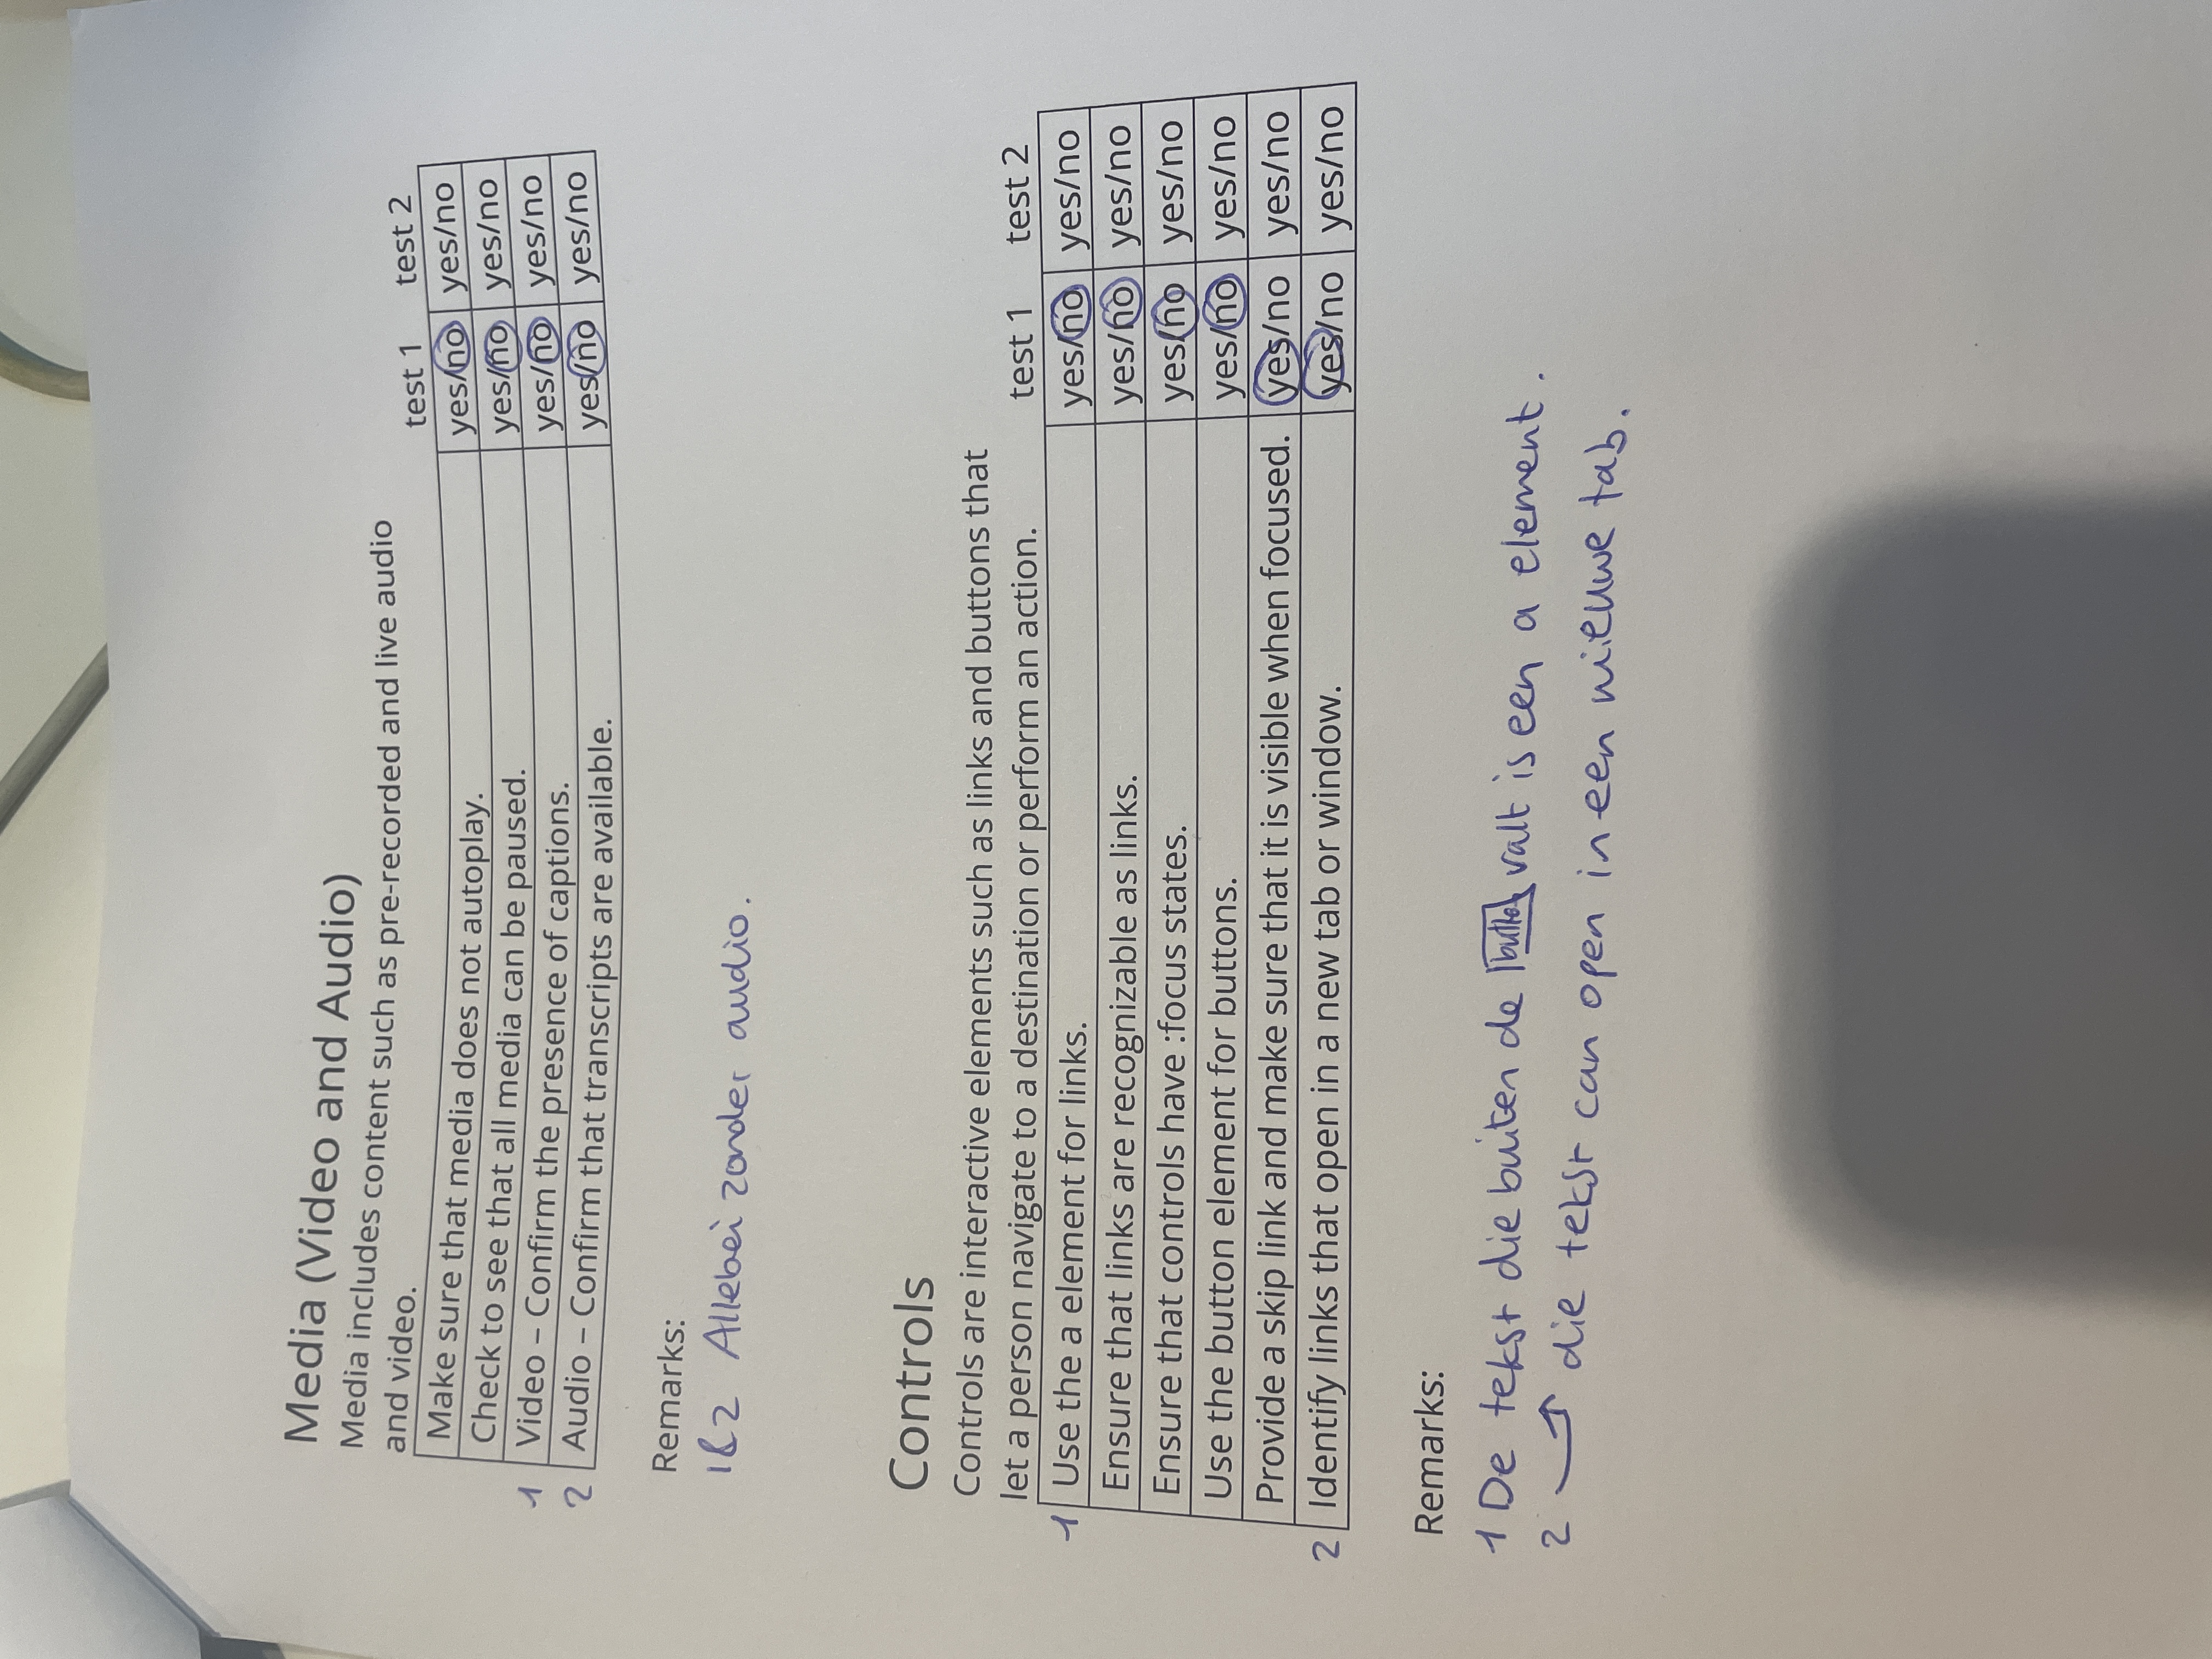 Media (Video and Audio)
Media includes content such as pre-recorded and live audio
and video.
test 1 test 2
Make sure that media does not autoplay. yes/no yes/no
Check to see that all media can be paused. yes/no yes/no
1 Video – Confirm the presence of captions. yes/no yes/no
2 Audio – Confirm that transcripts are available. yes/no yes/no
Remarks:
1&2 Allebei zonder audio.
Controls
Controls are interactive elements such as links and buttons that
let a person navigate to a destination or perform an action.
test 1 test 2
1 Use the a element for links. yes/no yes/no
Ensure that links are recognizable as links. yes/no yes/no
Ensure that controls have :focus states. yes/no yes/no
Use the button element for buttons. yes/no yes/no
Provide a skip link and make sure that it is visible when focused. yes/no yes/no
2 Identify links that open in a new tab or window. yes/no yes/no
Remarks:
1 De tekst die buiten de button valt is een a element.
2 die tekst can open in een nieuwe tab.